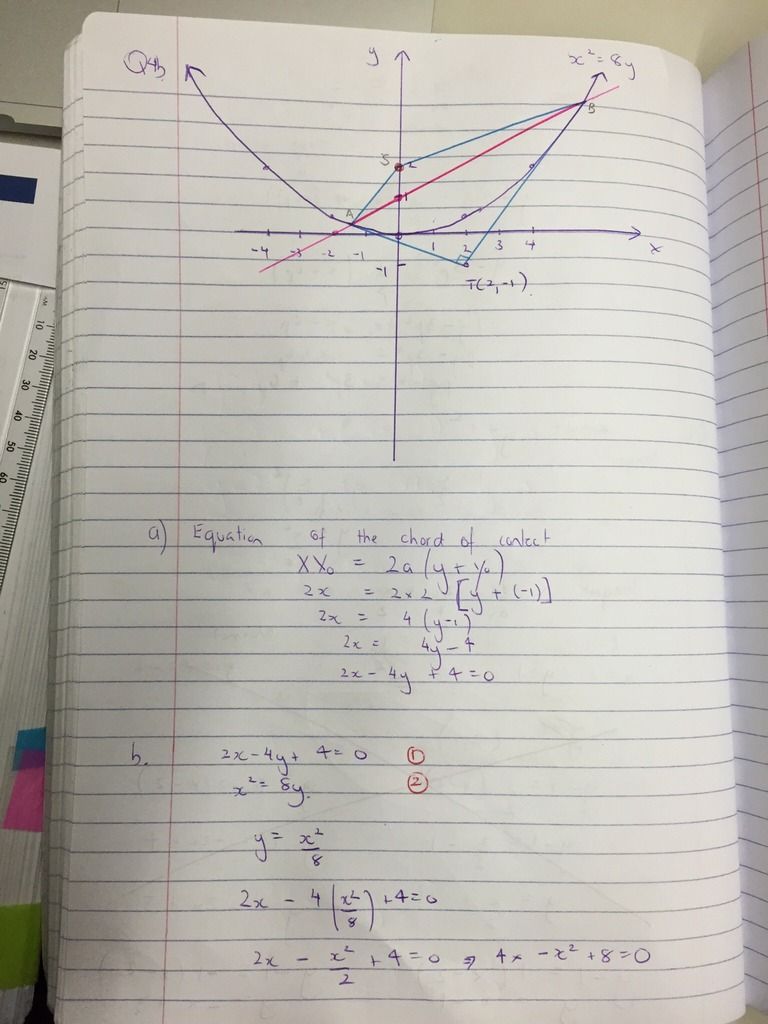 Q4b
y
x² = 8y
B
S 2
1
A
-4 -3 -2 -1 1 2 3 4
x
-1
T(2,-1)
a) Equation of the chord of contact
XX₀ = 2a (y + y₀)
2x = 2×2 [y + (-1)]
2x = 4 (y-1)
2x = 4y - 4
2x - 4y + 4 = 0
b. 2x - 4y + 4 = 0 ①
x² = 8y. ②
y = x²/8
2x - 4 (x²/8) + 4 = 0
2x - x²/2 + 4 = 0 ⇒ 4x - x² + 8 = 0
10
20
30
40
50
60